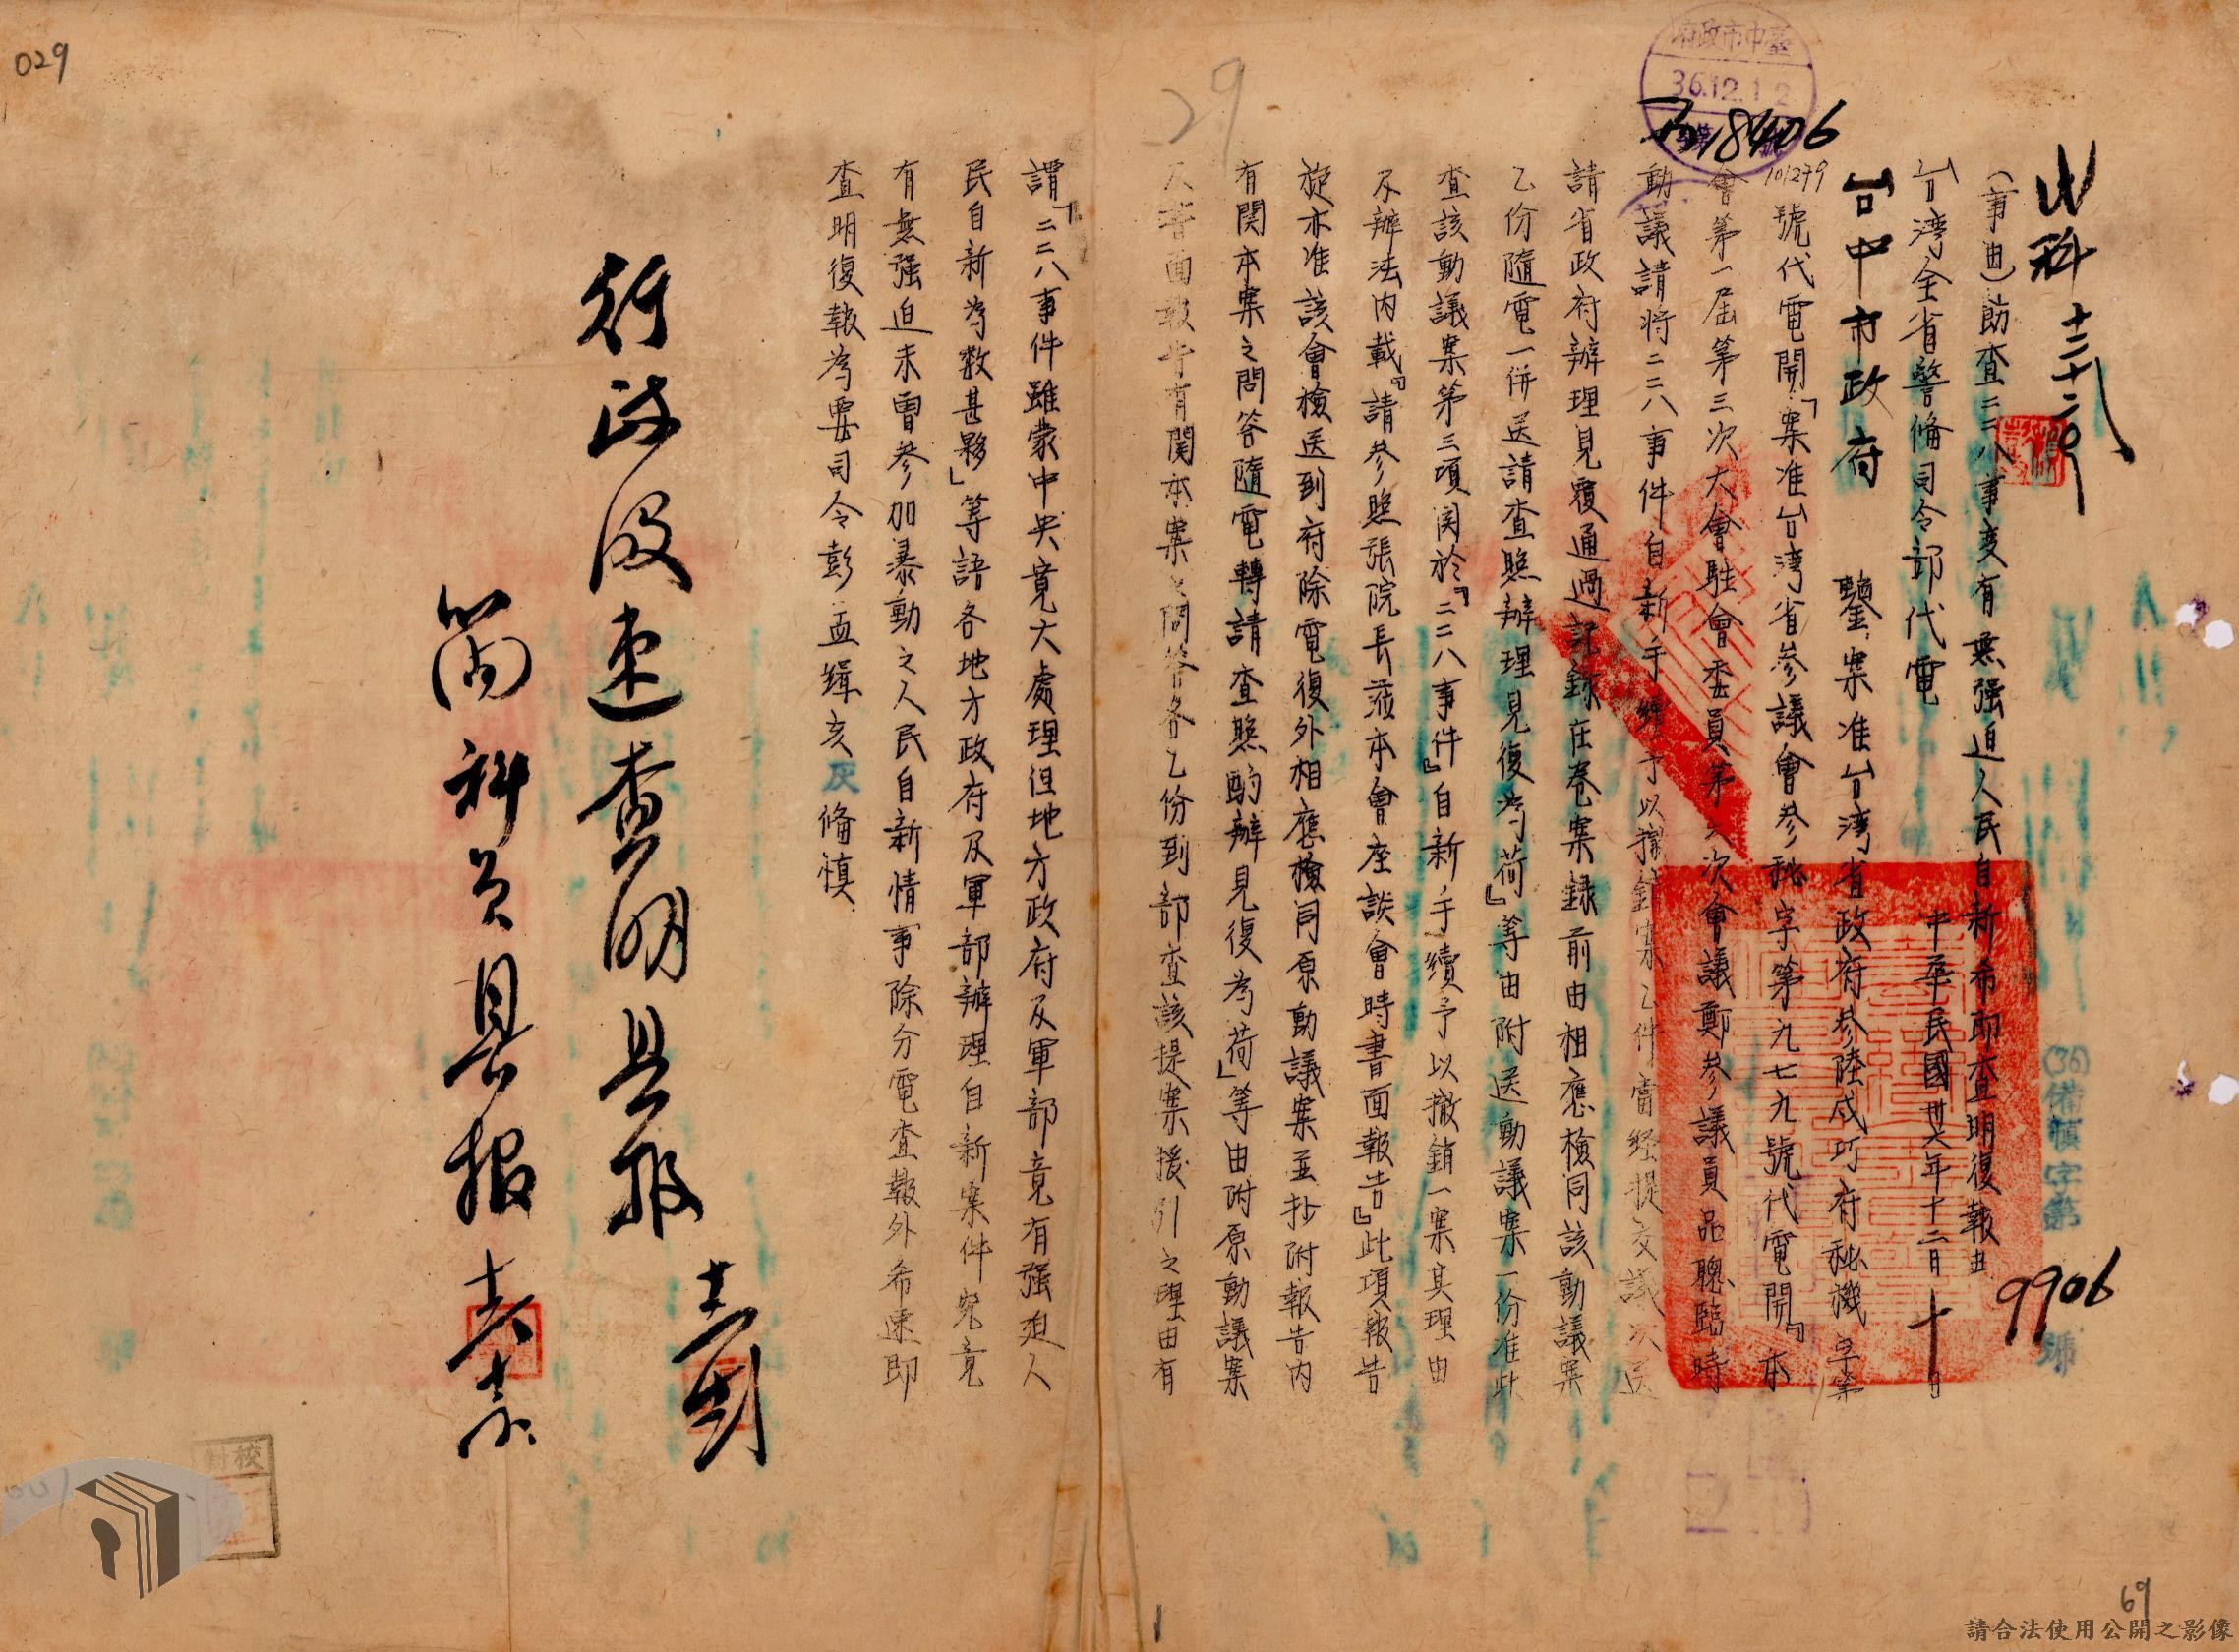 029
29
臺中市政府
36.12.12
18406
(36)備慎字第
9906
號
(事由)飭查二二八事变有無强迫人民自新希即查明復報由
台湾全省警備司令部代電
中華民國卅六年十二月十日
台中市政府 鑒案准台湾省政府参陸戍巧府秘機字第
101279號代電開「案准台湾省参議會参秘字第九七九號代電開『本
會第一屆第三次大會駐會委員第六次會議鄭参議員品聰臨時
動議請將二二八事件自新手續予以撤銷案乙件當經提交議決送
請省政府辦理見覆通過記録在卷案録前由相應檢同該動議案
乙份隨電一併送請查照辦理見復为荷』等由附送動議案一份准此
查該動議案第三項関於『二二八事件』自新手續予以撤銷一案其理由
及辦法内載『請参照張院長蒞本會座談會時書面報告』此項報告
旋亦准該會檢送到府除電復外相應檢同原動議案並抄附報告内
有関本案之問答隨電轉請查照酌辦見復為荷」等由附原動議案
及書面報告有関本案之問答各乙份到部查該提案援引之理由有
謂「二二八事件雖蒙中央寛大處理但地方政府及軍部竟有强迫人
民自新為数甚夥」等語各地方政府及軍部辦理自新案件究竟
有無强迫未曾参加暴動之人民自新情事除分電查報外希速即
查明復報為要司令彭孟緝亥灰備慎
行政股速查明具报
科員具报
校對
69
請合法使用公開之影像